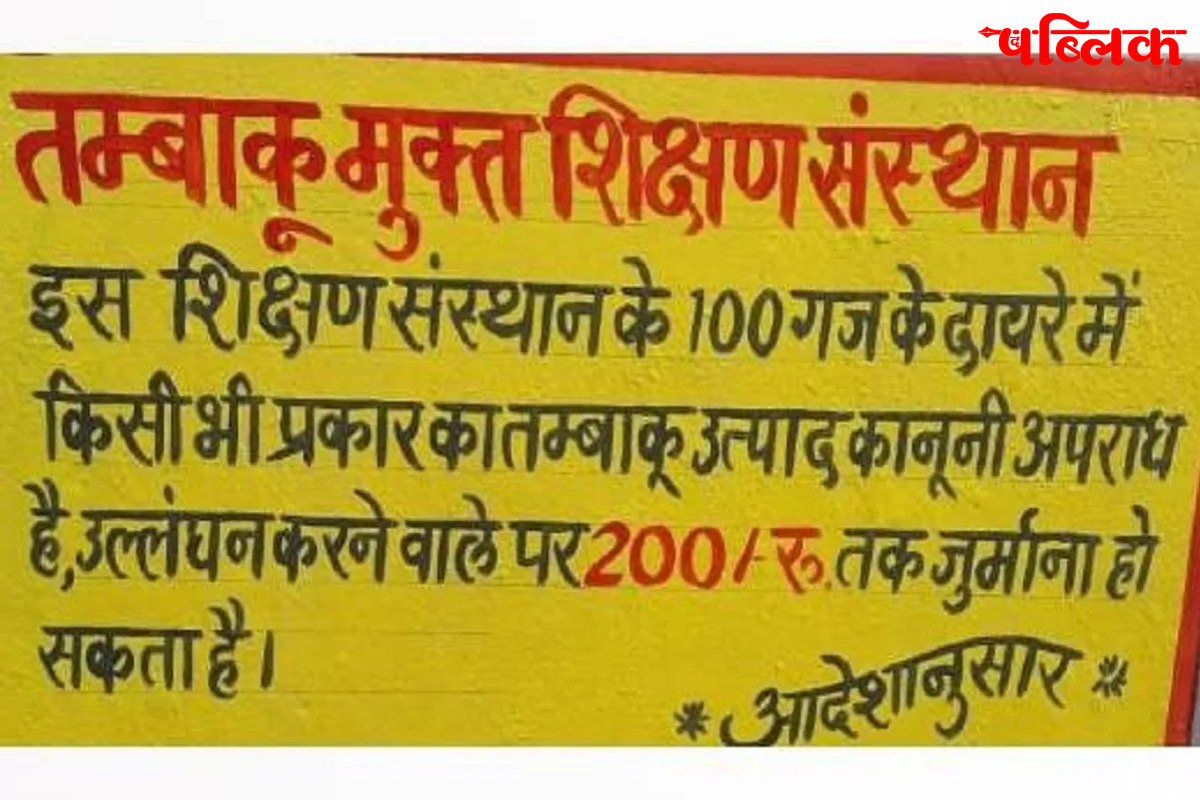 द पब्लिक
तम्बाकू मुक्त शिक्षण संस्थान
इस शिक्षण संस्थान के 100 गज के दायरे में
किसी भी प्रकार का तम्बाकू उत्पाद कानूनी अपराध
है, उल्लंघन करने वाले पर 200/- रु. तक जुर्माना हो
सकता है।
* आदेशानुसार *